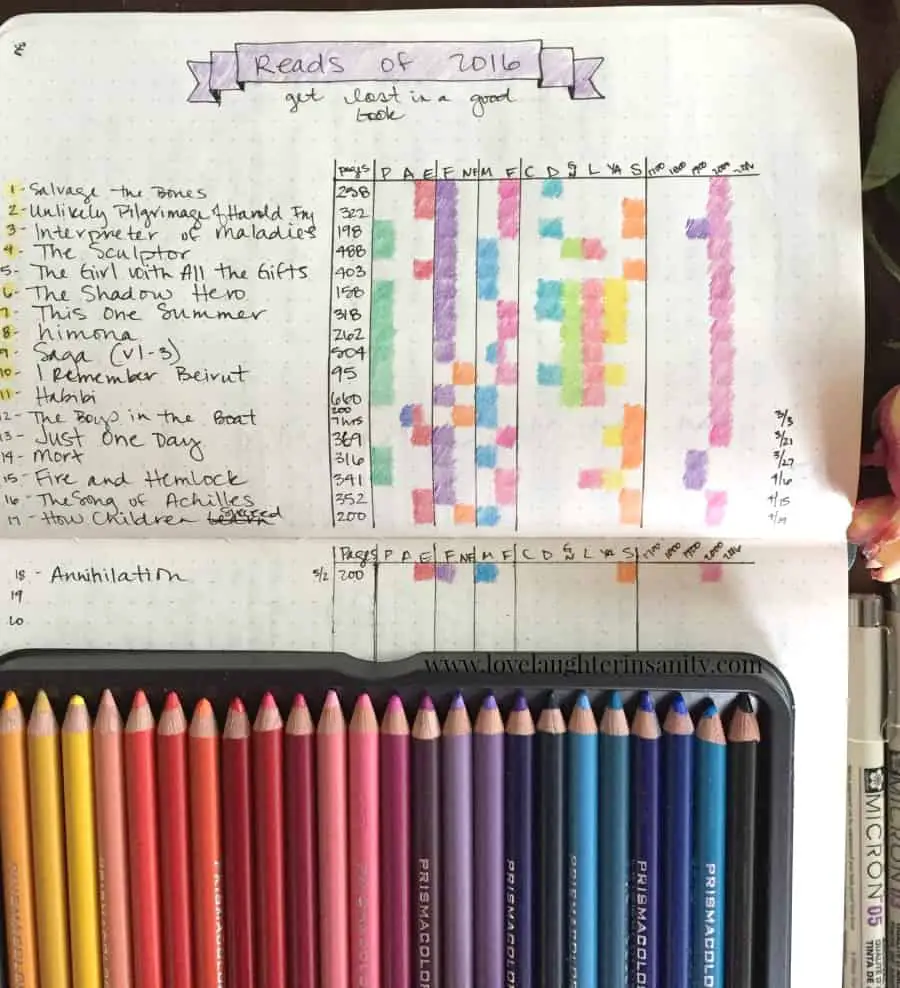 Reads of 2016
get lost in a good
book
Pages P A E F NF M F C D GN L YA S 1700 1800 1900 2000 2016
1 - Salvage the Bones 258
2 - Unlikely Pilgrimage of Harold Fry 322
3 - Interpreter of maladies 198
4 - The Sculptor 488
5 - The Girl With All the Gifts 403
6 - The Shadow Hero 158
7 - This One Summer 318
8 - nimona 262
9 - Saga (v1-3) 504
10 - I Remember Beirut 95
11 - Habibi 660
12 - The Boys in the Boat 200 7hrs 3/3
13 - Just One Day 369 3/21
14 - Mort 316 3/27
15 - Fire and Hemlock 341 4/6
16 - The Song of Achilles 352 4/15
17 - How Children Succeed 200 4/19
Pages P A E F NF M F C D GN L YA S 1700 1800 1900 2000 2016
18 - Annihilation 5/2 200
19
20
www.lovelaughterinsanity.com
PRISMACOLOR
PRISMACOLOR
PRISMACOLOR
PRISMACOLOR
PRISMACOLOR
MICRON 05
MICRON